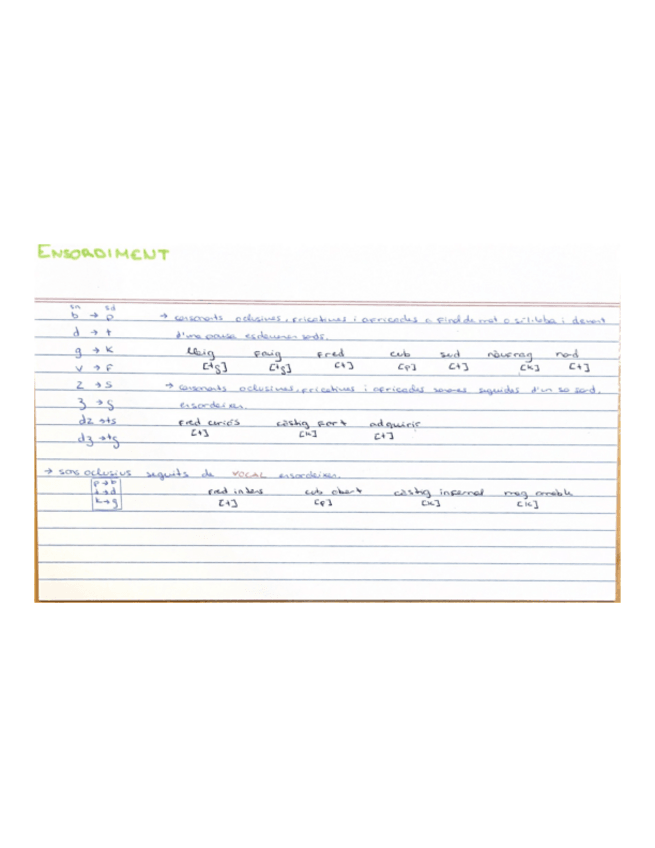 ENSORDIMENT
sn sd
b → p → consonants oclusives, fricatives i africades a final de mot o síl·laba i davant
d → t d'una pausa esdevenen sords.
g → k lleig faig fred cub sud nàufrag nord
v → f [tʃ] [tʃ] [t] [p] [t] [k] [t]
z → s → consonants oclusives, fricatives i africades sonores seguides d'un so sord,
ʒ → ʃ ensordeixen.
dz → ts fred curiós càstig fort adquirir
dʒ → tʃ [t] [k] [t]
→ sons oclusius seguits de VOCAL ensordeixen.
p→b fred intens cub obert càstig infernal mag amable
t→d [t] [p] [k] [k]
k→g